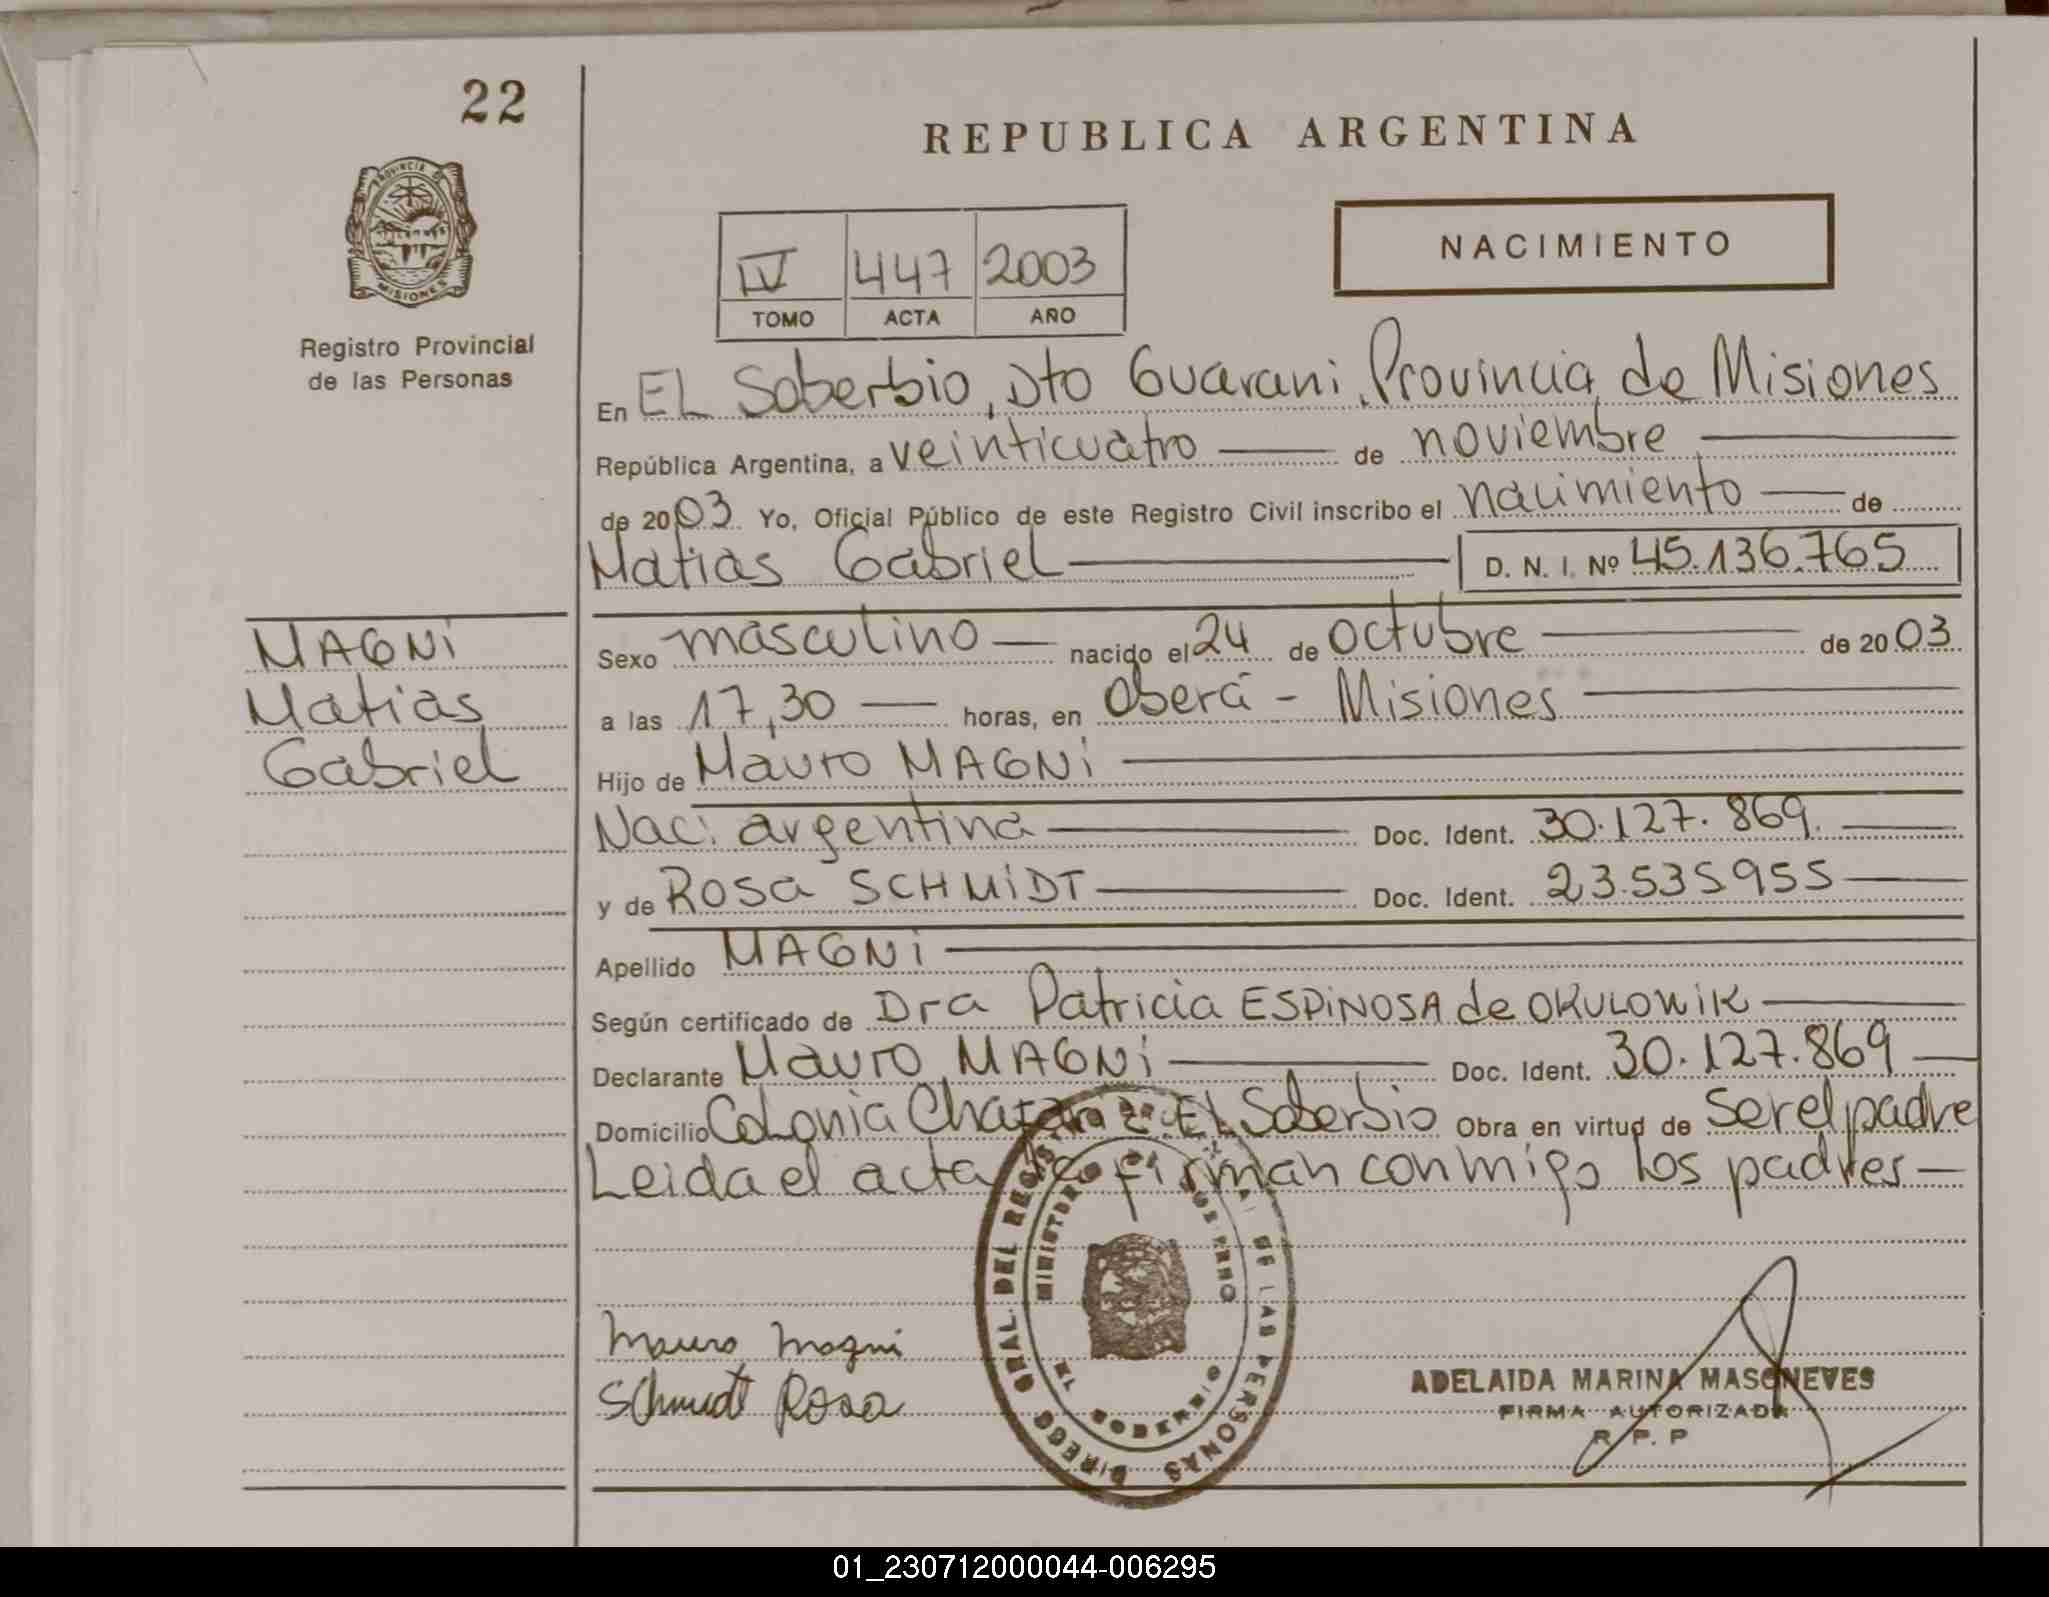 22
PROVINCIA DE
MISIONES
Registro Provincial
de las Personas
REPUBLICA ARGENTINA
NACIMIENTO
IV 447 2003
TOMO ACTA AÑO
En EL Soberbio, Dto Guarani, Provincia de Misiones
República Argentina, a veinticuatro — de noviembre —
de 2003 Yo, Oficial Público de este Registro Civil inscribo el nacimiento — de
Matias Gabriel — D. N. I. Nº 45.136.765
MAGNi
Matias
Gabriel
Sexo masculino — nacido el 24 de octubre — de 2003
a las 17,30 — horas, en Oberá - Misiones —
Hijo de Mauro MAGNi —
Nac: argentina — Doc. Ident. 30.127.869 —
y de Rosa SCHMiDT — Doc. Ident. 23.535955 —
Apellido MAGNi —
Según certificado de Dra Patricia ESPiNOSA de OKULOWiK —
Declarante Mauro MAGNi — Doc. Ident. 30.127.869 —
Domicilio Colonia EL Soberbio Obra en virtud de ser el padre
Leida el acta la firman conmigo los padres —
DIRECC GRAL. DEL REGIS DE LAS PERSONAS
MINISTERIO DE GOBIERNO
EL SOBERBIO
Mauro Magni
Schmidt Rosa
ADELAIDA MARINA MASONEVES
FIRMA AUTORIZADA
R. P. P
01_230712000044-006295